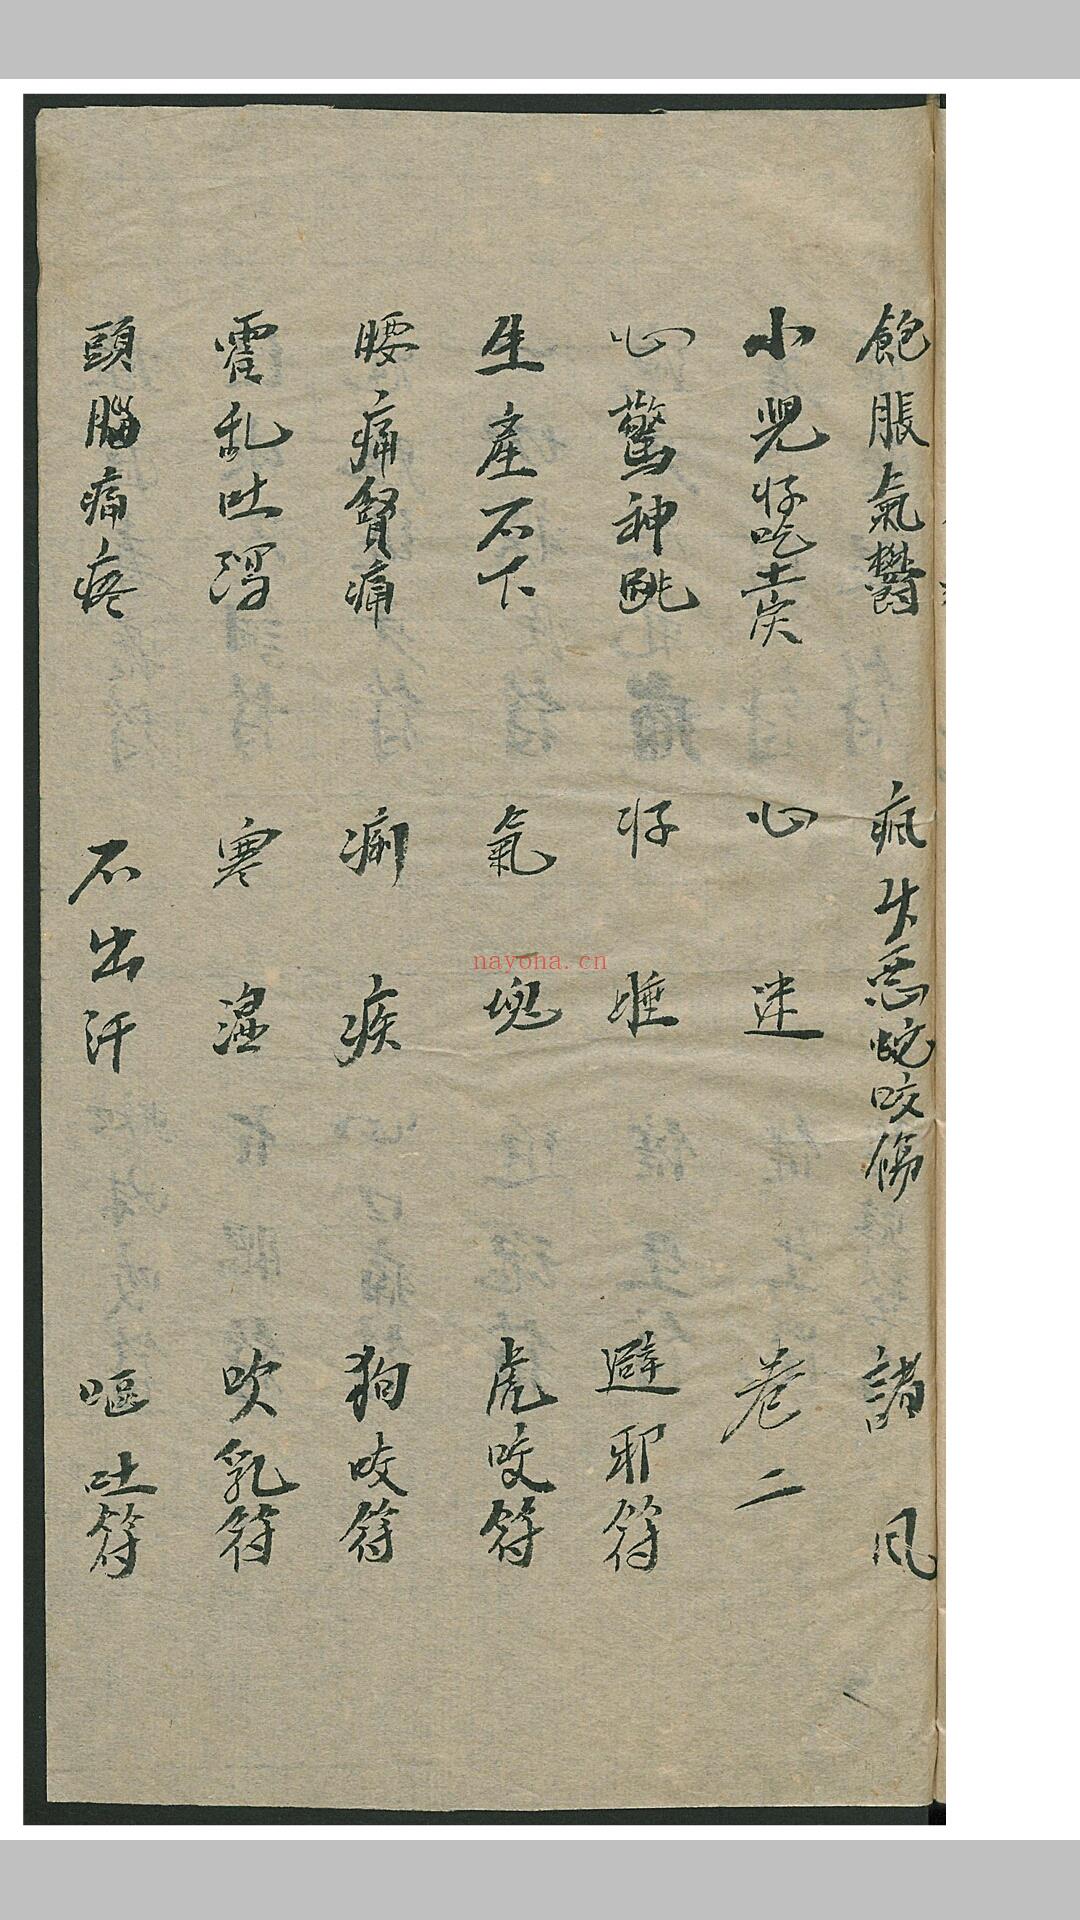 飽脹氣欝 瘋犬惡蛇咬傷 諸風
小兒好吃土炭 心迷 卷二
心驚神跳 好睡 避邪符
生產不下 氣塊 虎咬符
腰痛腎痛 痢疾 狗咬符
霍乱吐瀉 寒濕 吹乳符
頭腦痛疼 不出汗 嘔吐符
nayona.cn